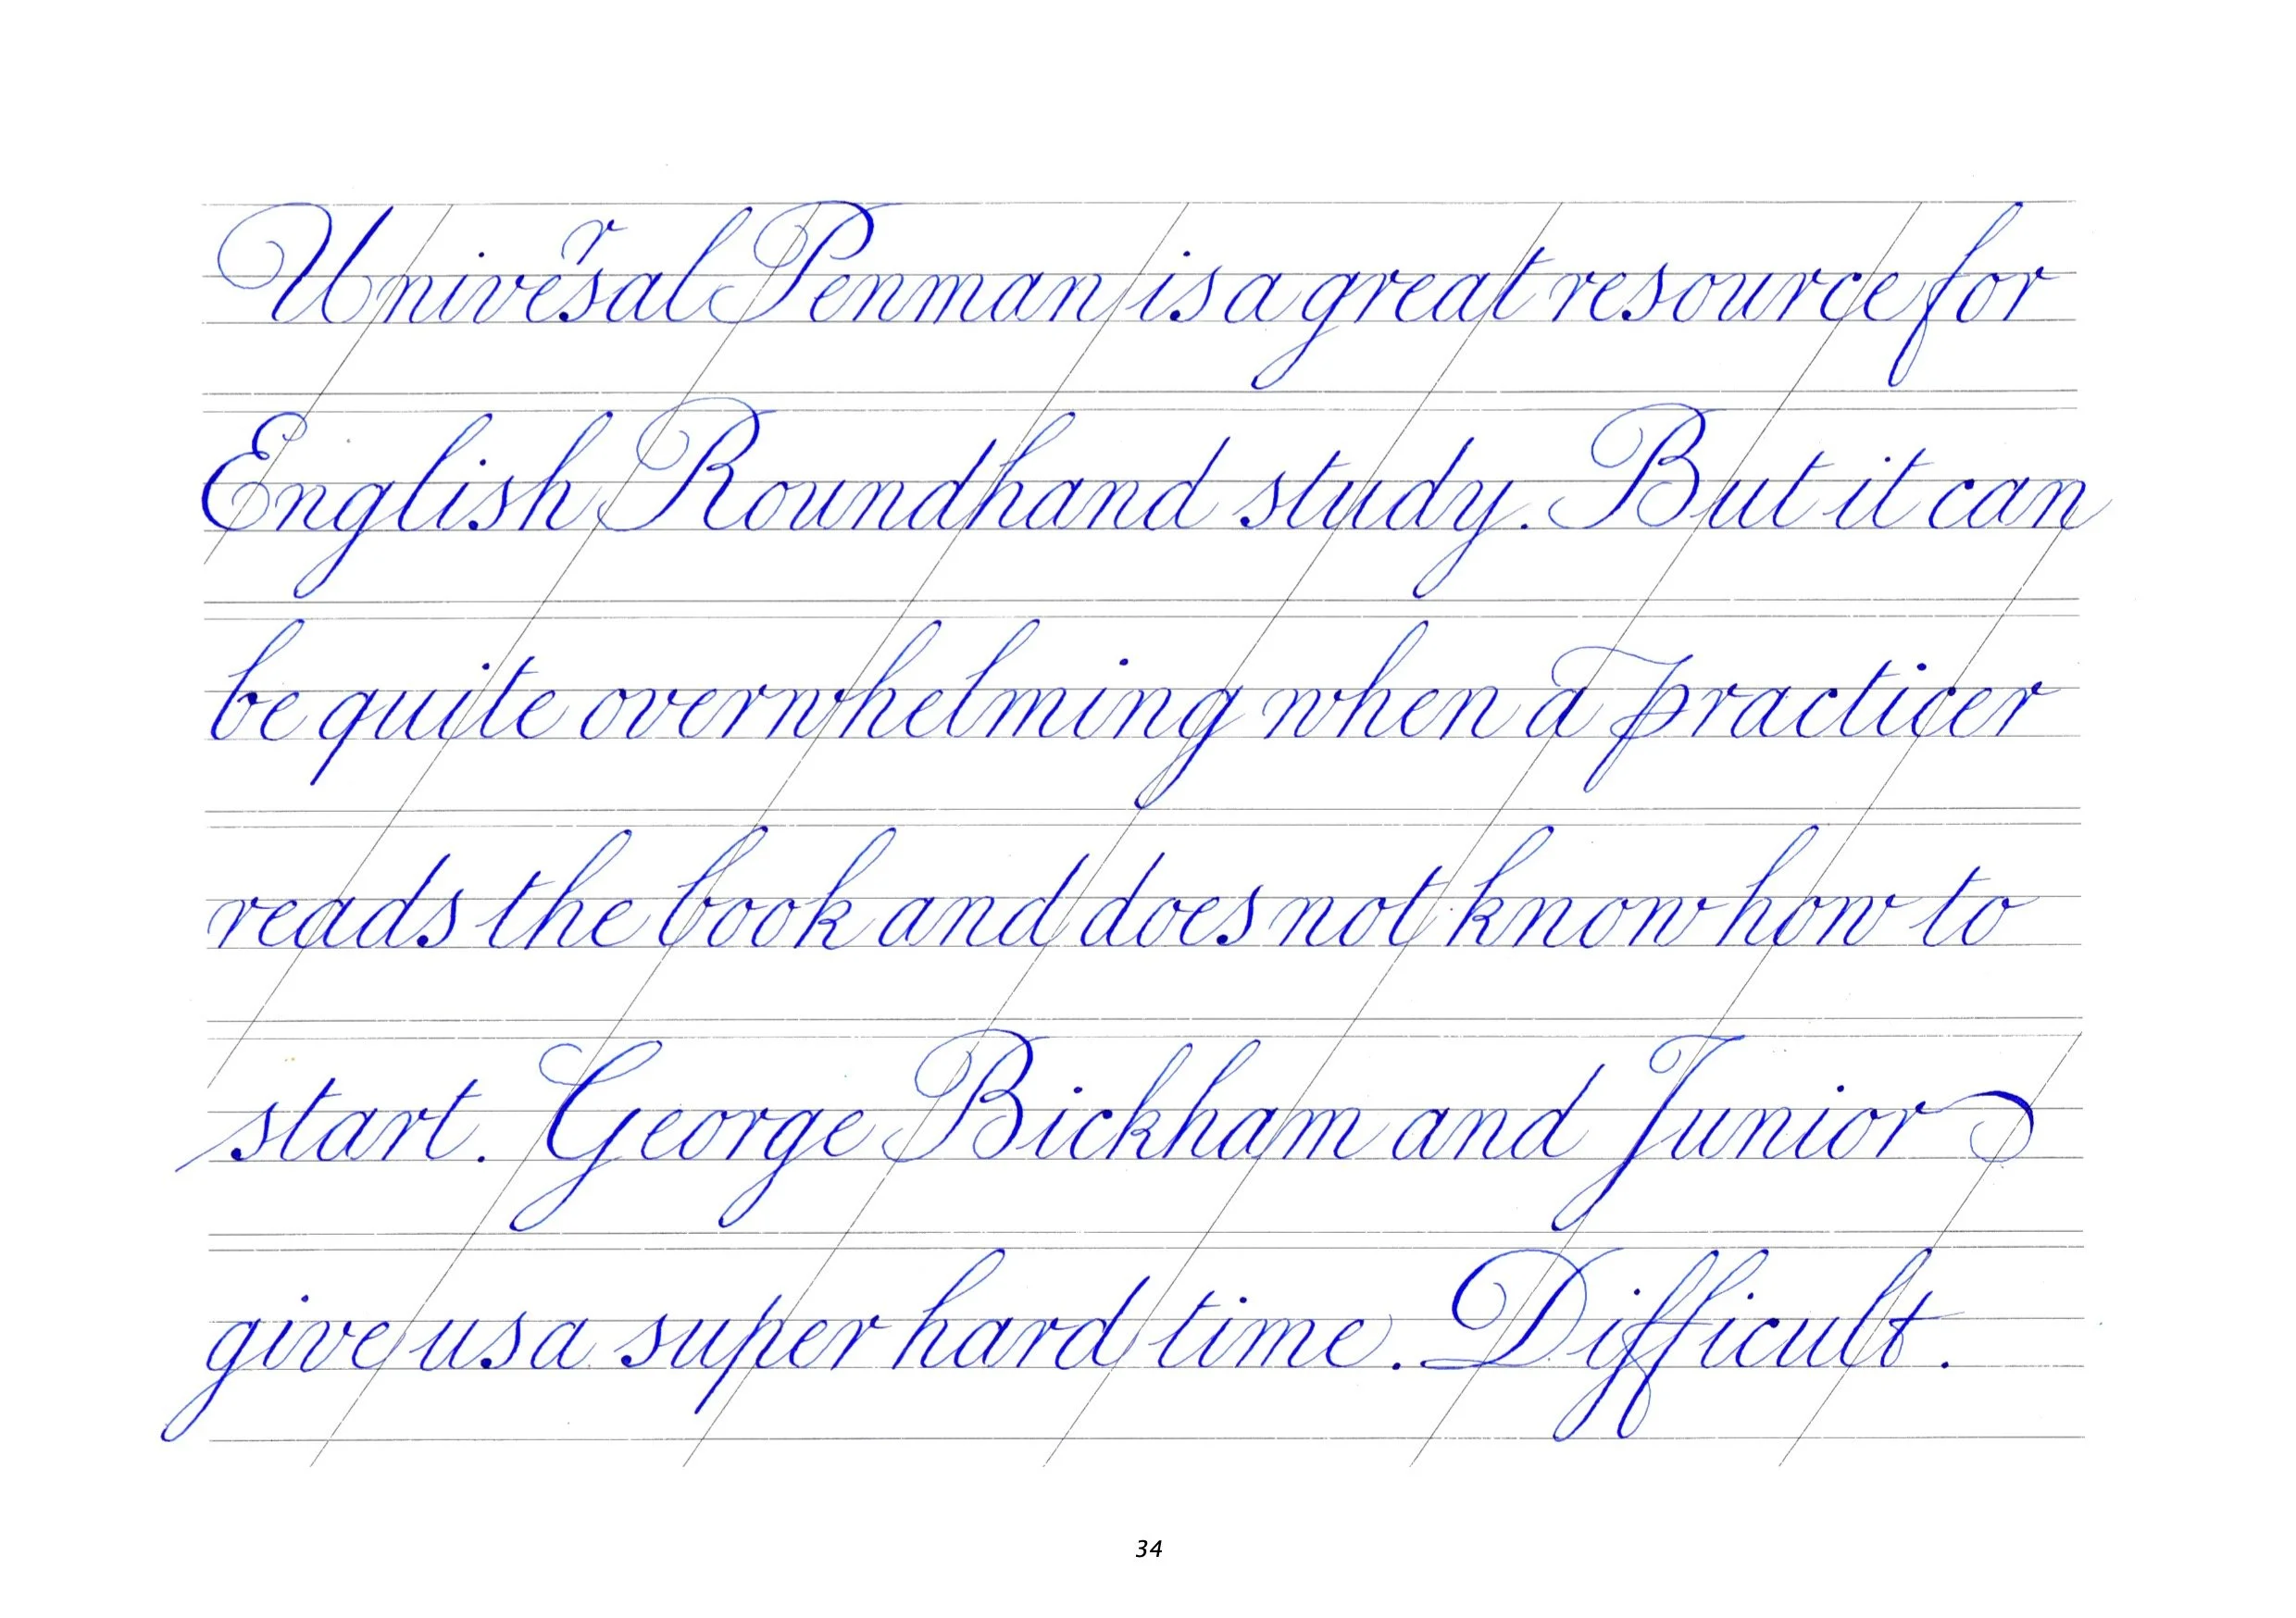 Universal Penman is a great resource for
English Roundhand study. But it can
be quite overwhelming when a practicer
reads the book and does not know how to
start. George Bickham and Junior
give us a super hard time. Difficult.
34